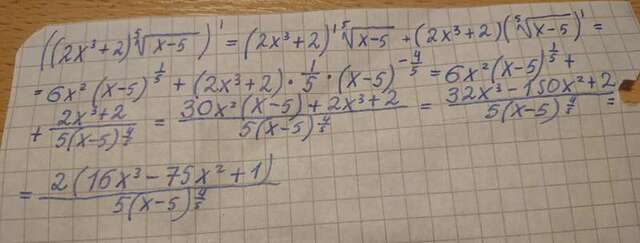 ((2x³+2)⁵√(x-5))' = (2x³+2)' ⁵√(x-5) + (2x³+2)(⁵√(x-5))' =
= 6x²(x-5)^(1/5) + (2x³+2)·1/5·(x-5)^(-4/5) = 6x²(x-5)^(1/5) +
+ (2x³+2)/(5(x-5)^(4/5)) = (30x²(x-5)+2x³+2)/(5(x-5)^(4/5)) = (32x³-150x²+2)/(5(x-5)^(4/5)) =
= 2(16x³-75x²+1)/(5(x-5)^(4/5))